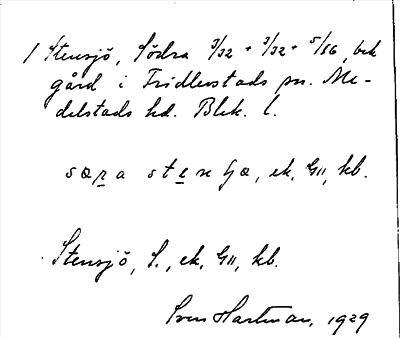 1 Stensjö, Södra 3/32 + 3/32 + 5/86, bek
gård i Fridlevstads sn. Me-
delstads hd. Blek. l.
Stensjö, S., ek, GII, kb.
Sven Hartman, 1929